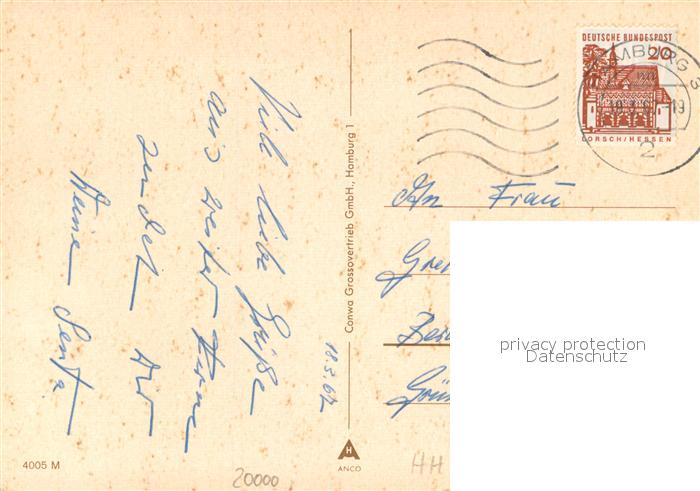 Viele liebe Grüße
aus weiter Ferne
sendet Dir
Deine Senta.
18.3.67
Conwa Grossovertrieb GmbH., Hamburg 1
H
ANCO
4005 M
20000
HH
DEUTSCHE BUNDESPOST
20
LORSCH/HESSEN
HAMBURG
-19
2
An Frau
privacy protection
Datenschutz